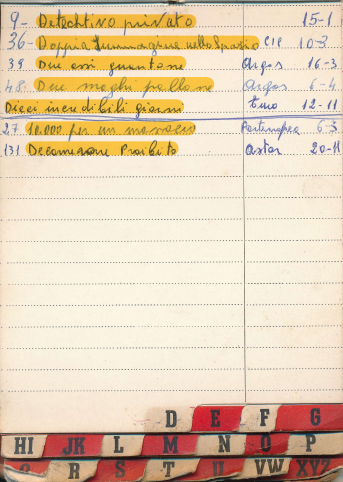 9- Detecktivo privato 15-1
36- Doppia Immagine nello Spazio CIC 10-3
39 Due assi guantone Argos 16-3
48- Due maghi pallone Argos 6-4
Dieci incredibili giorni Euro 12-11
27 10.000 per un massacro Partenopea 6-3
131 Decamerone Proibito Astor 20-11
D E F G
HI JK L M N O P
Q R S T U VW XYZ